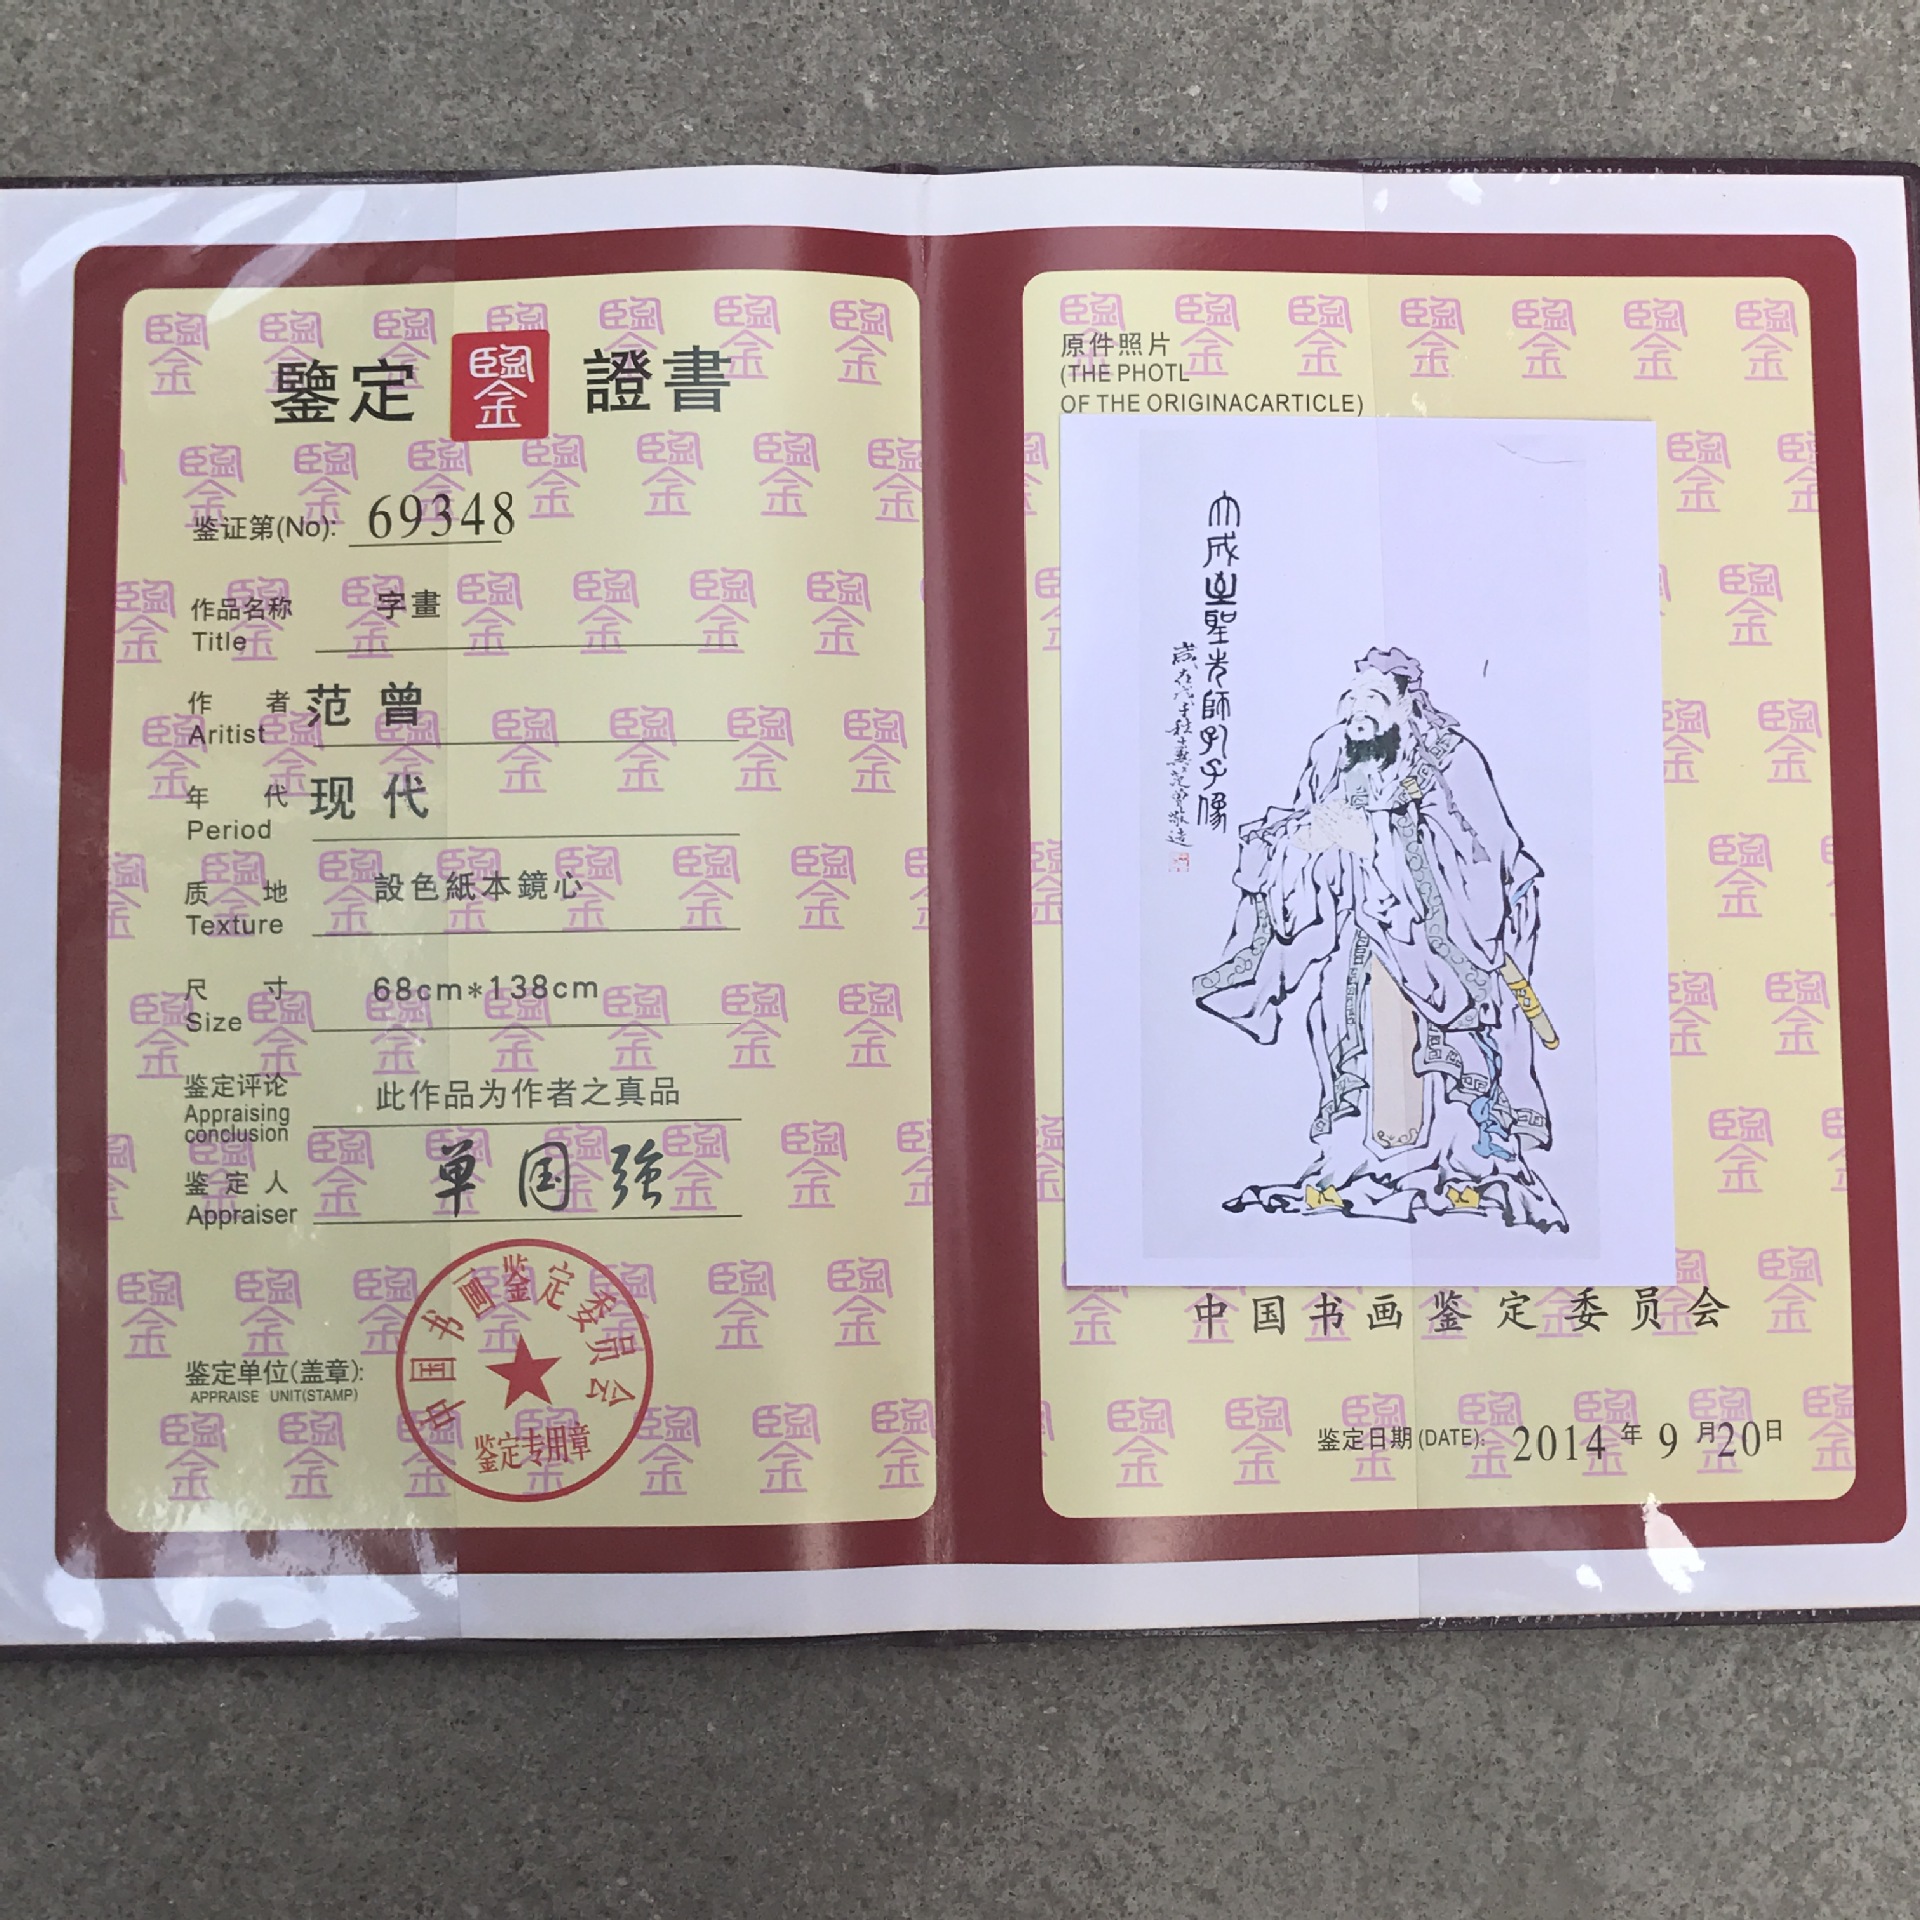 鑒定 鑒 證書
鉴证第(No): 69348
作品名称 字畫
Title
作者 范曾
Aritist
年代 现代
Period
质地 設色紙本鏡心
Texture
尺寸 68cm*138cm
Size
鉴定评论 此作品为作者之真品
Appraising
conclusion
鉴定人 单国強
Appraiser
鉴定单位(盖章):
APPRAISE UNIT(STAMP)
中国书画鉴定委员会
鉴定专用章
原件照片
(THE PHOTL
OF THE ORIGINACARTICLE)
大成至聖先師孔子像
中国书画鉴定委员会
鉴定日期(DATE): 2014年9月20日